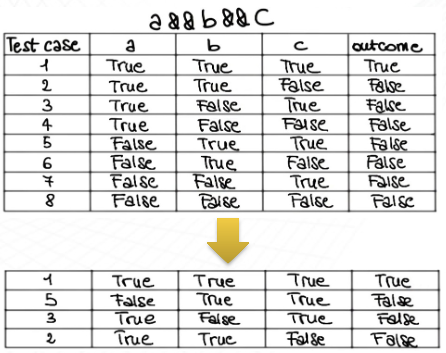 a && b && c
Test case a b c outcome
1 True True True True
2 True True False False
3 True False True False
4 True False False False
5 False True True False
6 False True False False
7 False False True False
8 False False False False
1 True True True True
5 False True True False
3 True False True False
2 True True False False